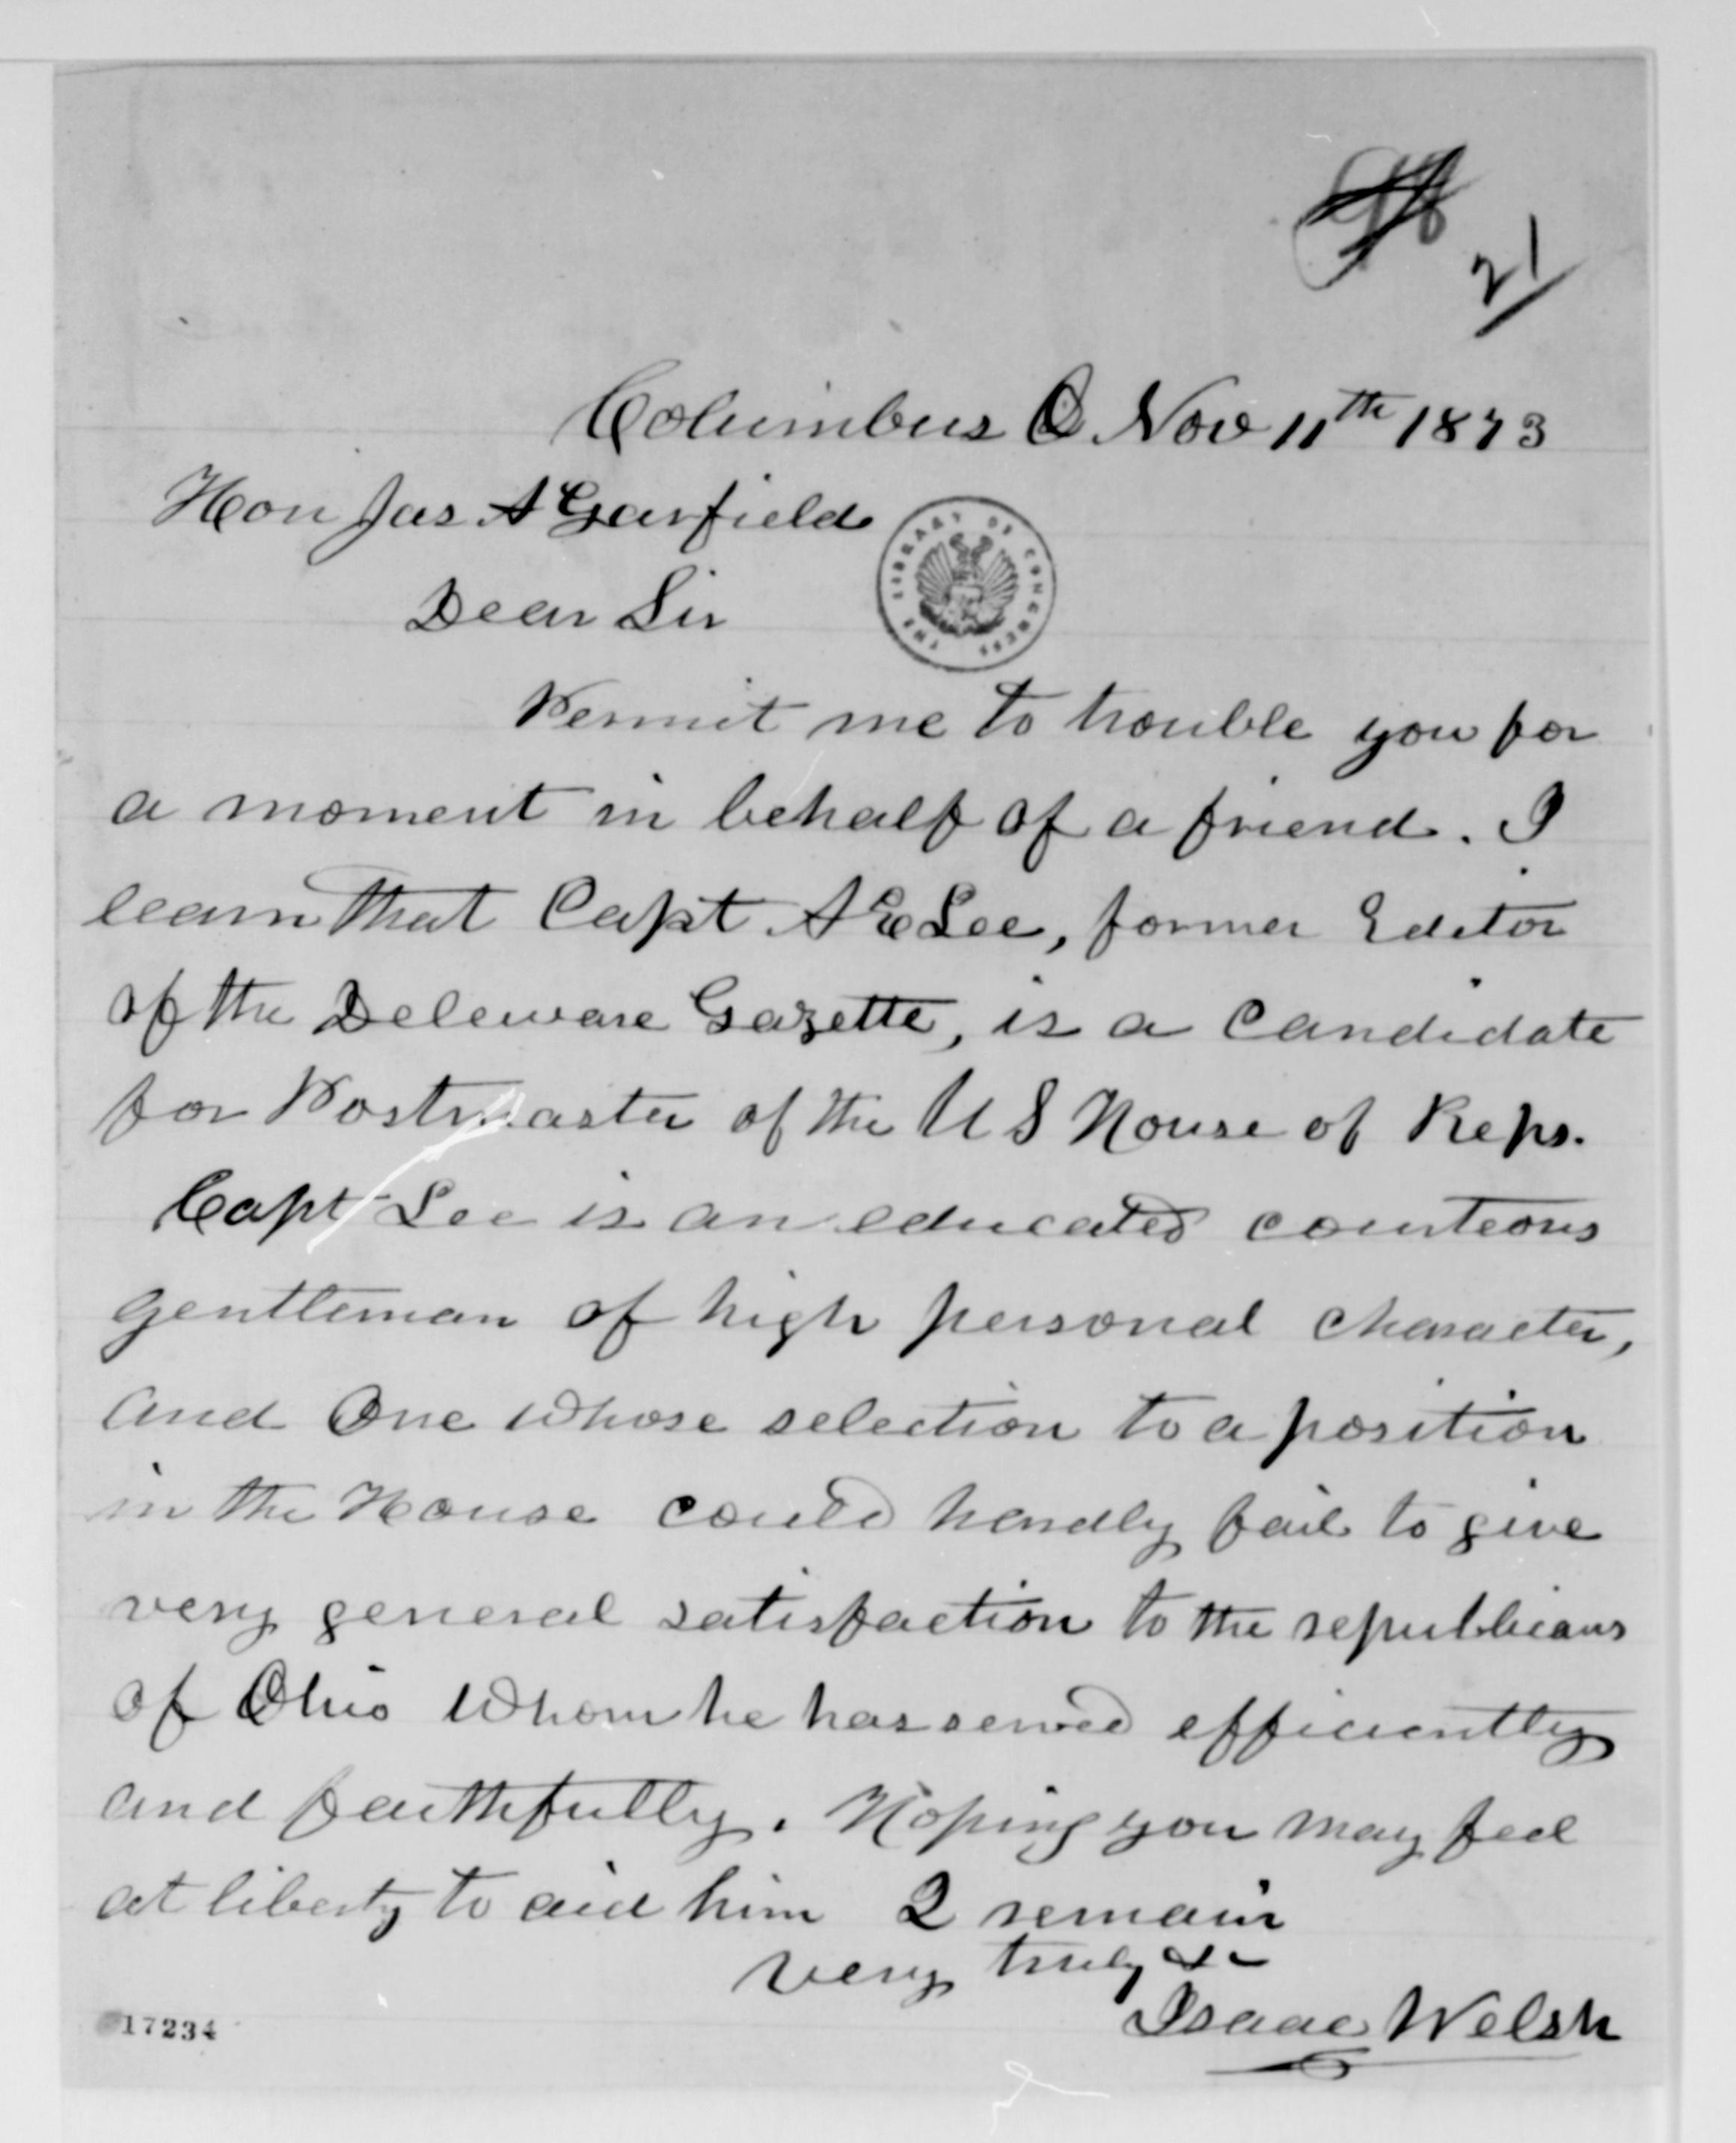 21
Columbus O. Nov 11th 1873
Hon Jas A Garfield
THE LIBRARY OF CONGRESS
Dear Sir
Permit me to trouble you for
a moment in behalf of a friend. I
learn that Capt A E Lee, former Editor
of the Deleware Gazette, is a candidate
for Postmaster of the U S House of Reps.
Capt Lee is an educated courteous
gentleman of high personal character,
and one whose selection to a position
in the House could hardly fail to give
very general satisfaction to the republicans
of Ohio whom he has served efficiently
and faithfully. Hoping you may feel
at liberty to aid him I remain
very truly &c
Isaac Welsh
17234